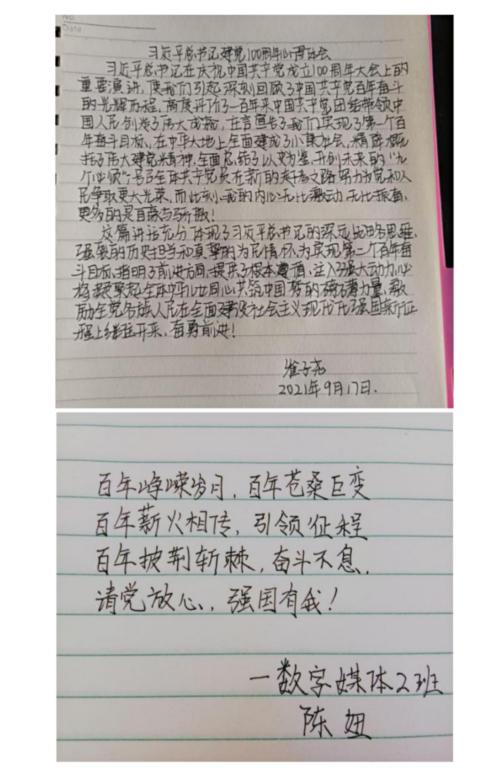 No
Date
习近平总书记建党100周年心得体会
习近平总书记在庆祝中国共产党成立100周年大会上的
重要演讲，使我们引起深刻回顾了中国共产党百年奋斗
的光辉历程，高度评价了一百年来中国共产党团结带领中
国人民创造了伟大成就，庄言宣告了我们实现了第一个百
年奋斗目标，在中华大地上全面建成了小康社会，精辟概
括了伟大建党精神，全面总结了以史为鉴、开创未来的“九
个必须”号召全体共产党员在新的赶考之路努力为党和人
民争取更大光荣，而此刻，我的内心无比激动无比振奋，
更多的是自豪与骄傲！
这篇讲话充分体现了习近平总书记的深远战略思维，
强烈的历史担当和真挚的为民情怀为实现第二个百年奋
斗目标指明了前进方向，提供了根本遵循，注入强大动力，必
将凝聚起全体中华儿女同心共筑中国梦的磅礴力量，激
励全党各族人民在全面建设社会主义现代化强国新征
程上继往开来，奋勇前进！
崔子尧
2021年9月17日.
百年峥嵘岁月，百年苍桑巨变
百年薪火相传，引领征程
百年披荆斩棘，奋斗不息，
请党放心，强国有我！
一数字媒体2班
陈妞